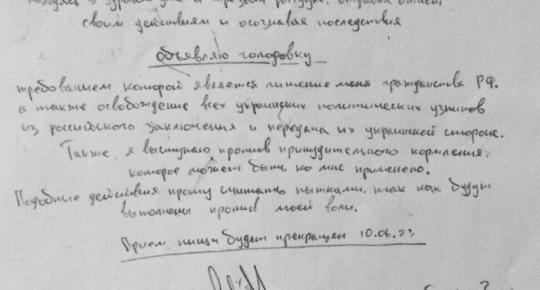 находясь в здравом уме и трезвом рассудке, отдавая отчет
своим действиям и осознавая последствия
объявляю голодовку
требованием которой является лишение меня гражданства РФ.
а также освобождение всех украинских политических узников
из российского заключения и передача их украинской стороне.
Также, я выступаю против принудительного кормления,
которое может быть ко мне применено.
Подобные действия прошу считать пытками, так как будут
выполнены против моей воли.
Прием пищи будет прекращен 10.06.23